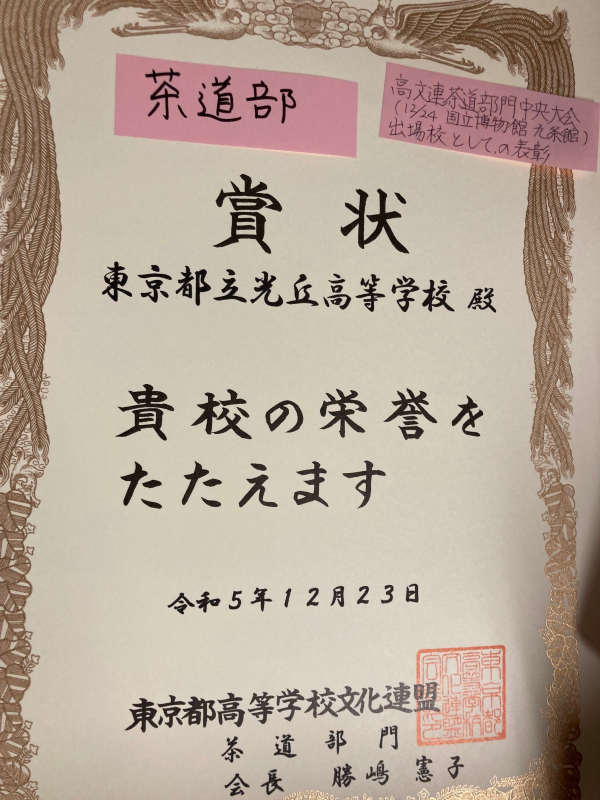 茶道部
高文連茶道部門中央大会
(12/24 国立博物館 九条館)
出場校としての表彰
賞状
東京都立光丘高等学校 殿
貴校の栄誉を
たたえます
令和5年12月23日
東京都高等学校文化連盟
茶道部門
会長 勝嶋憲子